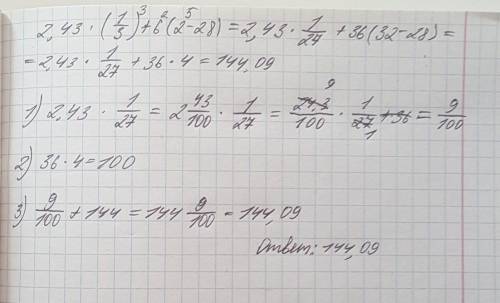 2,43 · (1/3)³ + 6²(2⁵ - 28) = 2,43 · 1/27 + 36(32 - 28) =
= 2,43 · 1/27 + 36 · 4 = 144,09
1) 2,43 · 1/27 = 2 43/100 · 1/27 = 243/100 · 1/27 = 9/100
2) 36 · 4 = 100
3) 9/100 + 144 = 144 9/100 = 144,09
Ответ: 144,09